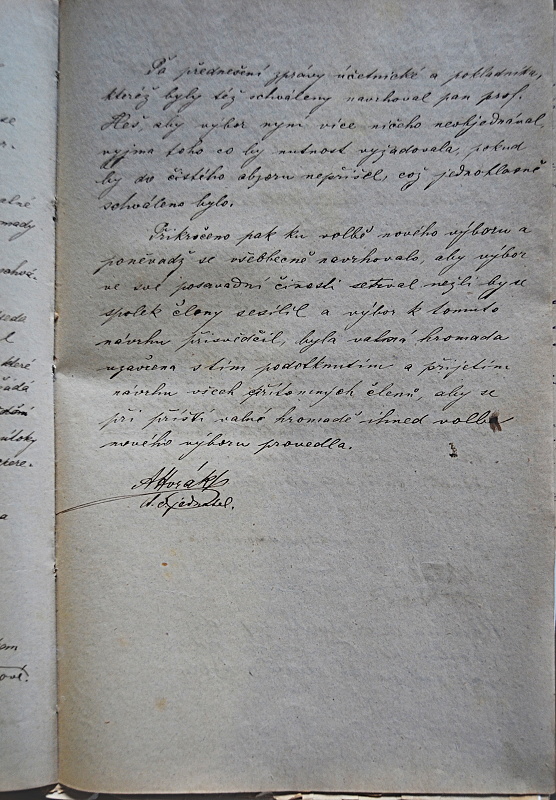 Po přednešení zprávy účetnické a pokladníka,
kteréž byly též schváleny navrhoval pan prof.
Heš, aby výbor nyní více ničeho neobjednával
vyjma toho co by nutnost vyžadovala, pokud
by do čistého obzoru nepřišel, což jednohlasně
schváleno bylo.
Přikročeno pak ku volbě nového výboru a
poněvadž se všeobecně navrhovalo, aby výbor
ve své posavadní činosti setrval nežli by se
spolek členy sesílil a výbor k tomuto
návrhu přisvědčil, byla valná hromada
uzavřena s tím podotknutím a přijetím
návrhu všech přítomných členů, aby se
při příští valné hromadě ihned volba
nového výboru provedla.
AHorák
t. č. jednatel.
se
r.
elné
omady
eda
l
které
žádá
a